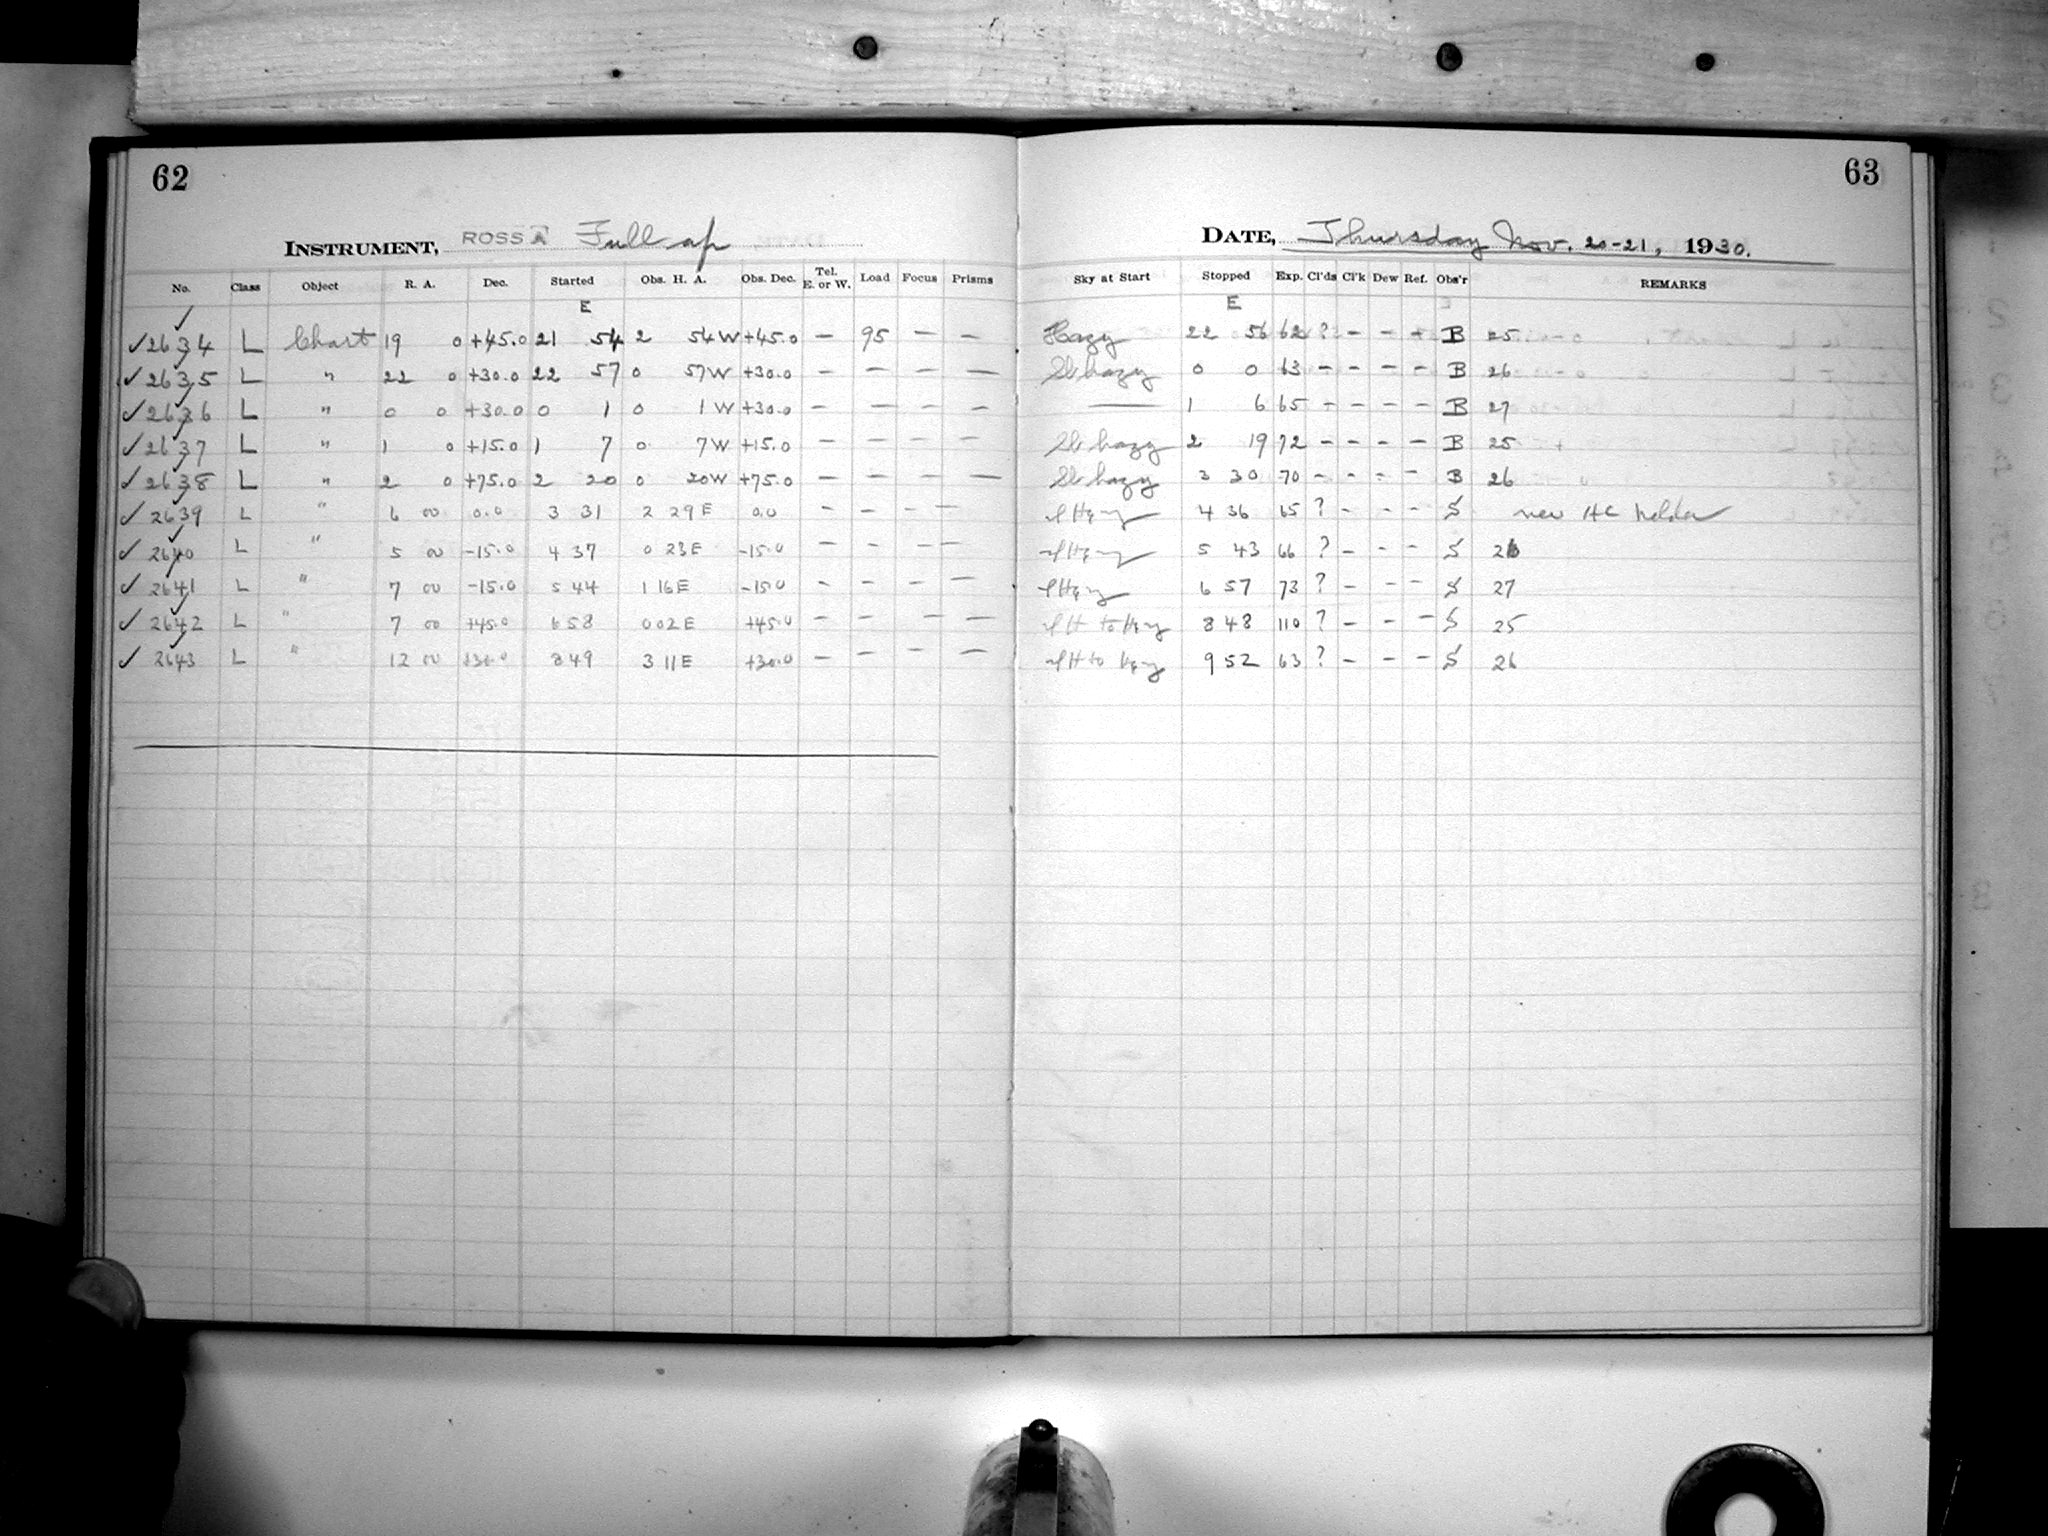 62
INSTRUMENT, ROSS A Full ap
No. Class Object R. A. Dec. Started Obs. H. A. Obs. Dec. Tel. E. or W. Load Focus Prisms
E
✓ 2634 L Chart 19 0 +45.0 21 54 2 54 W +45.0 — 95 — —
✓ 2635 L " 22 0 +30.0 22 57 0 57 W +30.0 — — — —
✓ 2636 L " 0 0 +30.0 0 1 0 1 W +30.0 — — — —
✓ 2637 L " 1 0 +15.0 1 7 0 7 W +15.0 — — — —
✓ 2638 L " 2 0 +75.0 2 20 0 20 W +75.0 — — — —
✓ 2639 L " 6 00 0.0 3 31 2 29 E 0.0 — — — —
✓ 2640 L " 5 00 -15.0 4 37 0 23 E -15.0 — — — —
✓ 2641 L " 7 00 -15.0 5 44 1 16 E -15.0 — — — —
✓ 2642 L " 7 00 +45.0 6 58 0 02 E +45.0 — — — —
✓ 2643 L " 12 00 +30.0 8 49 3 11 E +30.0 — — — —
63
DATE, Thursday Nov. 20-21, 1930.
Sky at Start Stopped Exp. Cl'ds Cl'k Dew Ref. Obs'r REMARKS
E
Hazy 22 56 62 ? — — — B 25
Sl hazy 0 0 63 — — — — B 26
— 1 6 65 — — — — B 27
Sl hazy 2 19 72 — — — — B 25
Sl hazy 3 30 70 — — — — B 26
sl Hzy 4 36 65 ? — — — S new HC holder
sl Hzy 5 43 66 ? — — — S 26
sl Hzy 6 57 73 ? — — — S 27
sl H to Hzy 8 48 110 ? — — — S 25
sl H to Hzy 9 52 63 ? — — — S 26